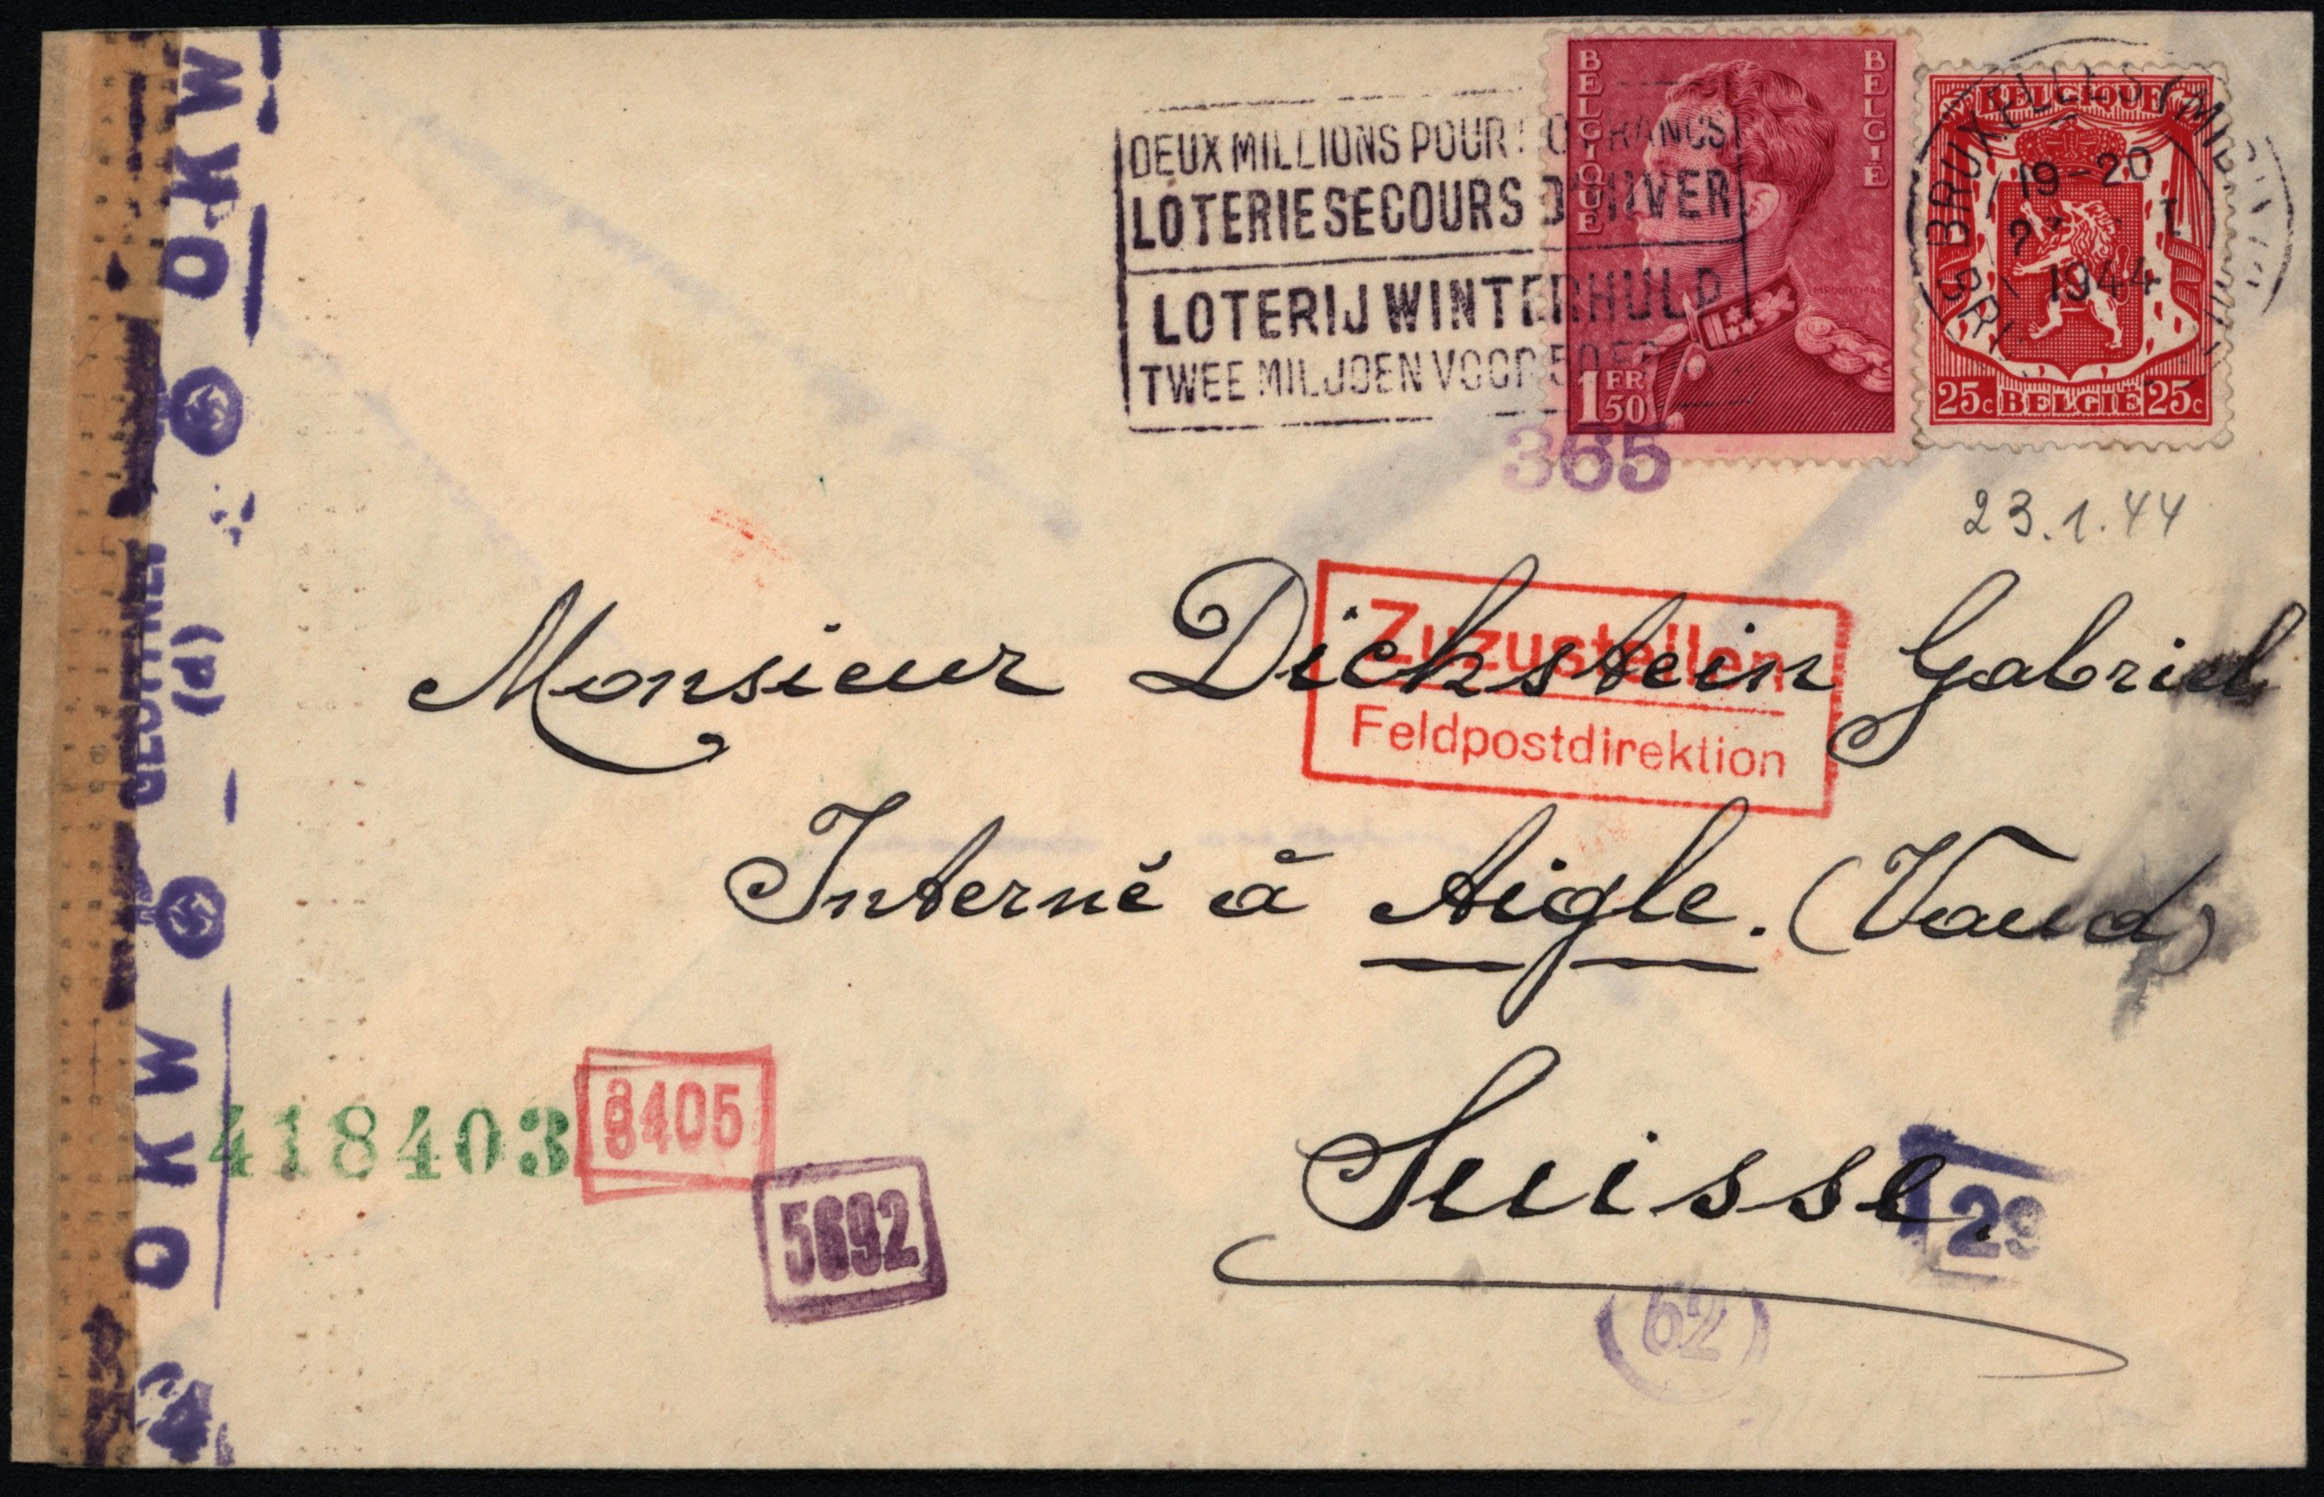 OKW
OKW
(d)
DEUX MILLIONS POUR FRANCS
LOTERIE SECOURS D'HIVER
LOTERIJ WINTERHULP
TWEE MILJOEN VOOR 50 FR
BELGIQUE
BELGIË
1 FR 50
BELGIQUE
25c BELGIË 25c
BRUXELLES (MIDI
19-20
I
1944
365
23.1.44
Zuzustellen
Feldpostdirektion
Monsieur Dickstein Gabriel
Interné à Aigle. (Vaud)
Suisse.
418403
3405
5692
29
62